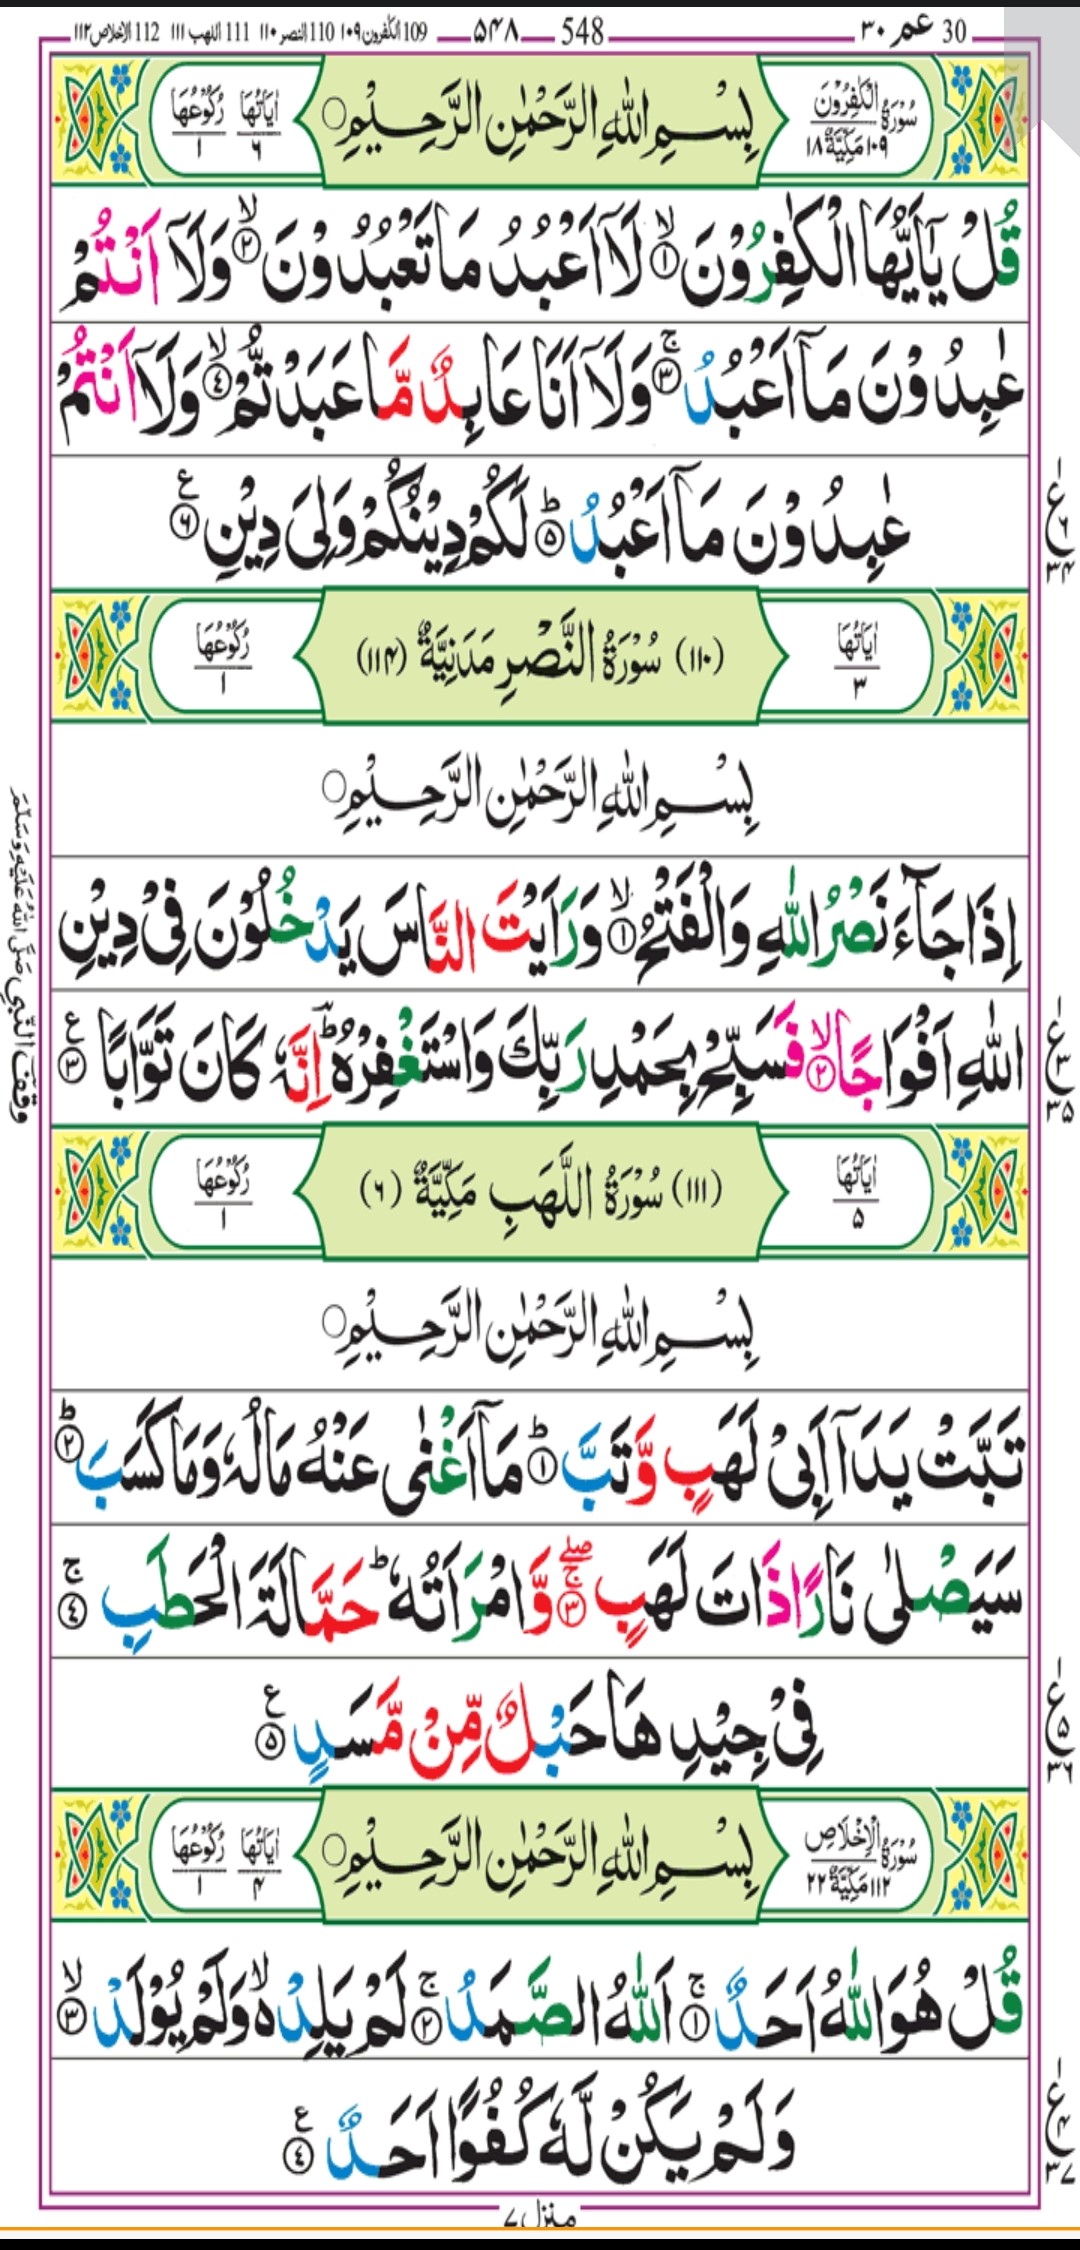 30 عم ۳۰ — 548 — ۵۴۸ — 109 الکٰفرون ۱۰۹ 110 النصر ۱۱۰ 111 اللهب ۱۱۱ 112 الاخلاص ۱۱۲
سُوْرَةُ الْكٰفِرُوْنَ ۱۰۹ مَكِّيَّةٌ ۱۸ بِسْمِ اللّٰهِ الرَّحْمٰنِ الرَّحِيْمِ○ اٰيَاتُهَا ۶ رُكُوْعُهَا ۱
قُلْ يٰۤاَيُّهَا الْكٰفِرُوْنَ ۙ‏﴿۱﴾ لَاۤ اَعْبُدُ مَا تَعْبُدُوْنَ ۙ‏﴿۲﴾ وَلَاۤ اَنْتُمْ
عٰبِدُوْنَ مَاۤ اَعْبُدُ ۚ‏﴿۳﴾ وَلَاۤ اَنَا عَابِدٌ مَّا عَبَدْتُّمْ ۙ‏﴿۴﴾ وَلَاۤ اَنْتُمْ
عٰبِدُوْنَ مَاۤ اَعْبُدُ ؕ‏﴿۵﴾ لَكُمْ دِيْنُكُمْ وَلِىَ دِيْنِ ﴿۶﴾ ع
ع ۱ ۶ ۳۴
اٰيَاتُهَا ۳ (۱۱۰) سُوْرَةُ النَّصْرِ مَدَنِيَّةٌ (۱۱۴) رُكُوْعُهَا ۱
بِسْمِ اللّٰهِ الرَّحْمٰنِ الرَّحِيْمِ○
اِذَا جَآءَ نَصْرُ اللّٰهِ وَالْفَتْحُ ۙ‏﴿۱﴾ وَرَاَيْتَ النَّاسَ يَدْخُلُوْنَ فِىْ دِيْنِ
اللّٰهِ اَفْوَاجًا ۙ‏﴿۲﴾ فَسَبِّحْ بِحَمْدِ رَبِّكَ وَاسْتَغْفِرْهُ ؕؔ اِنَّهٗ كَانَ تَوَّابًا ﴿۳﴾ ع
ع ۱ ۳ ۳۵
وقف النبی صَلَّى اللّٰهُ عَلَيْهِ وَسَلَّمَ
اٰيَاتُهَا ۵ (۱۱۱) سُوْرَةُ اللَّهَبِ مَكِّيَّةٌ (۶) رُكُوْعُهَا ۱
بِسْمِ اللّٰهِ الرَّحْمٰنِ الرَّحِيْمِ○
تَبَّتْ يَدَاۤ اَبِىْ لَهَبٍ وَّتَبَّ ؕ‏﴿۱﴾ مَاۤ اَغْنٰى عَنْهُ مَالُهٗ وَمَا كَسَبَ ؕ‏﴿۲﴾
سَيَصْلٰى نَارًا ذَاتَ لَهَبٍ ۚۖ‏﴿۳﴾ وَّامْرَاَتُهٗ ؕ حَمَّالَةَ الْحَطَبِ ۚ‏﴿۴﴾
فِىْ جِيْدِهَا حَبْلٌ مِّنْ مَّسَدٍ ﴿۵﴾ ع
ع ۱ ۵ ۳۶
سُوْرَةُ الْاِخْلَاصِ ۱۱۲ مَكِّيَّةٌ ۲۲ بِسْمِ اللّٰهِ الرَّحْمٰنِ الرَّحِيْمِ○ اٰيَاتُهَا ۴ رُكُوْعُهَا ۱
قُلْ هُوَ اللّٰهُ اَحَدٌ ۚ‏﴿۱﴾ اَللّٰهُ الصَّمَدُ ۚ‏﴿۲﴾ لَمْ يَلِدْ ۙ۬ وَلَمْ يُوْلَدْ ۙ‏﴿۳﴾
وَلَمْ يَكُنْ لَّهٗ كُفُوًا اَحَدٌ ﴿۴﴾ ع
ع ۱ ۴ ۳۷
منزل ۷